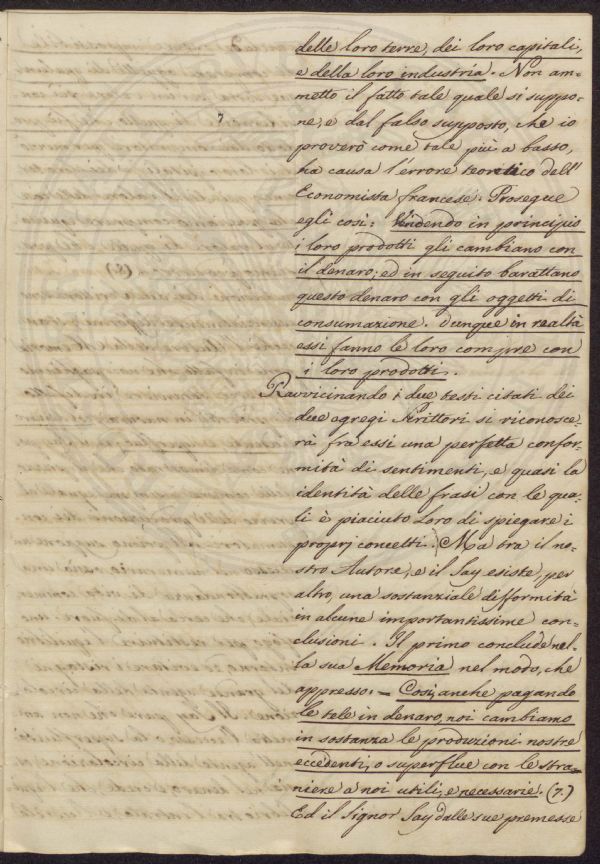 delle loro terre, dei loro capitali,
e della loro industria. Non am-
metto il fatto tale quale si suppo-
ne, e dal falso supposto, che io
proverò come tale più a basso,
ha causa l'errore teoretico dell'
Economista francese. Prosegue
egli così: Vendendo in principio
i loro prodotti gli cambiano con
il denaro; ed in seguito barattano
questo denaro con gli oggetti di
consumazione. Dunque in realtà
essi fanno le loro compre con
i loro prodotti.
Ravvicinando i due testi citati dei
due egregi Scrittori si riconosce-
rà fra essi una perfetta confor-
mità di sentimenti, e quasi la
identità delle frasi con le qua-
li è piaciuto Loro di spiegare i
proprj concetti. Ma tra il no-
stro Autore, e il Say esiste, per
altro, una sostanziale difformità
in alcune importantissime con-
clusioni. Il primo conclude nel-
la sua Memoria nel modo, che
appresso: = Così, anche pagando
le tele in denaro, noi cambiamo
in sostanza le produzioni nostre
eccedenti, o superflue con le stra-
niere a noi utili, e necessarie. (7.)
Ed il Signor Say dalle sue premesse